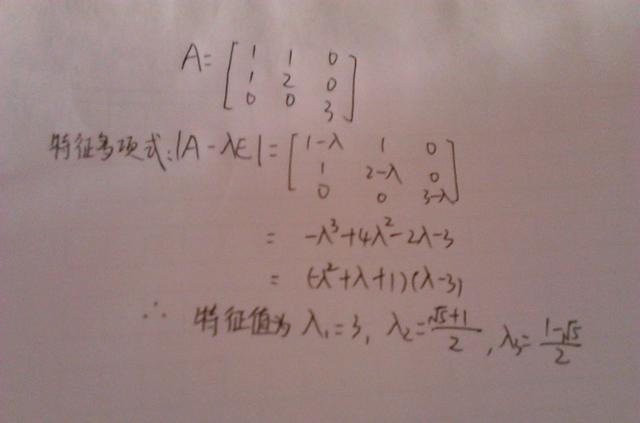 A= [1 1 0
1 2 0
0 0 3]
特征多项式:|A-λE|= [1-λ 1 0
1 2-λ 0
0 0 3-λ]
= -λ³+4λ²-2λ-3
= (-λ²+λ+1)(λ-3)
∴ 特征值为 λ₁=3, λ₂=(√5+1)/2, λ₃=(1-√5)/2